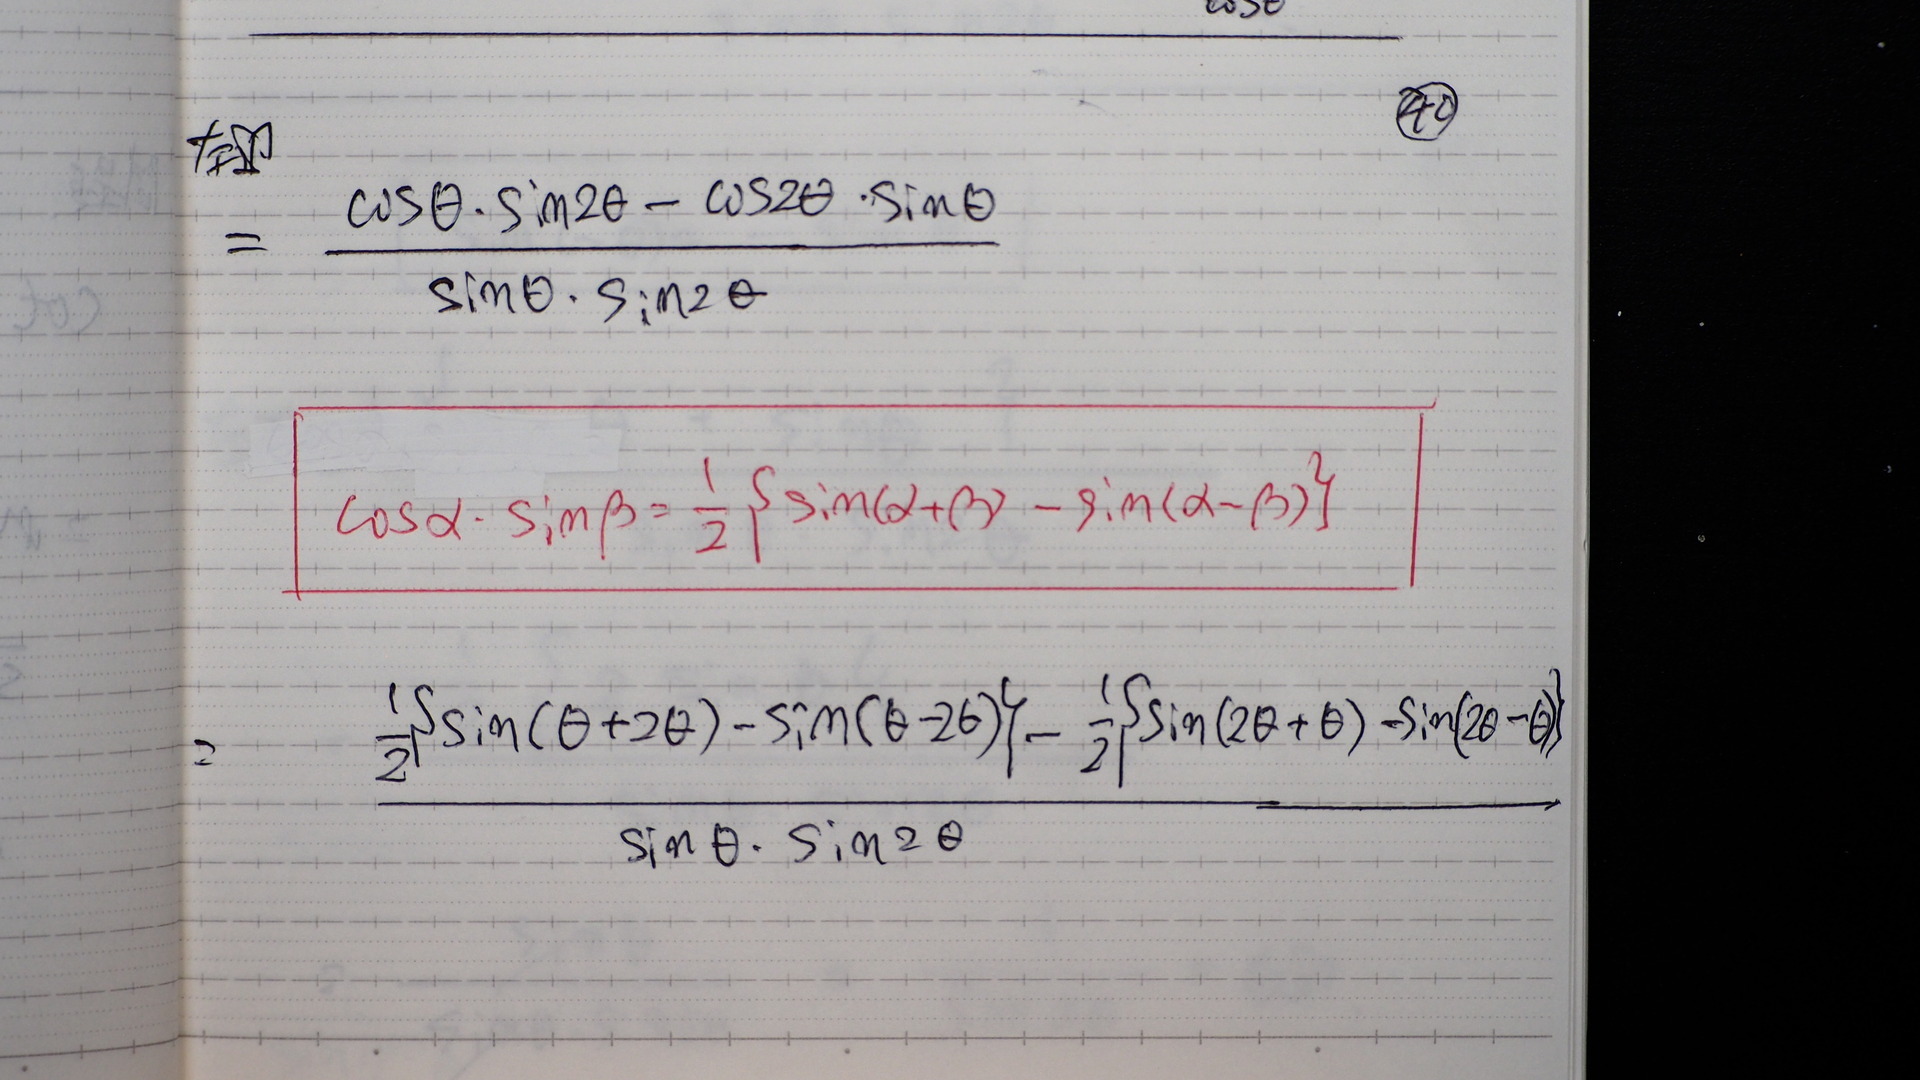 cosθ
40
左辺
= (cosθ・sin2θ − cos2θ・sinθ) / (sinθ・sin2θ)
cosα・sinβ = 1/2 {sin(α+β) − sin(α−β)}
= (1/2 {sin(θ+2θ) − sin(θ−2θ)} − 1/2 {sin(2θ+θ) − sin(2θ−θ)}) / (sinθ・sin2θ)